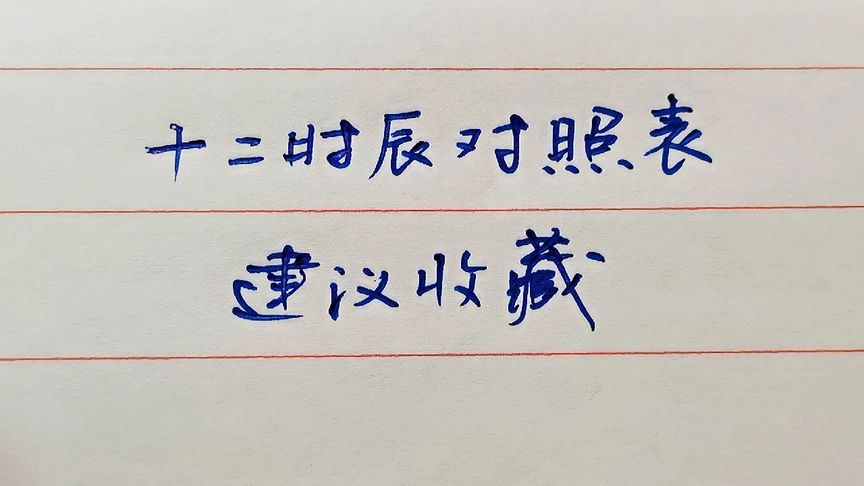 十二时辰对照表
建议收藏